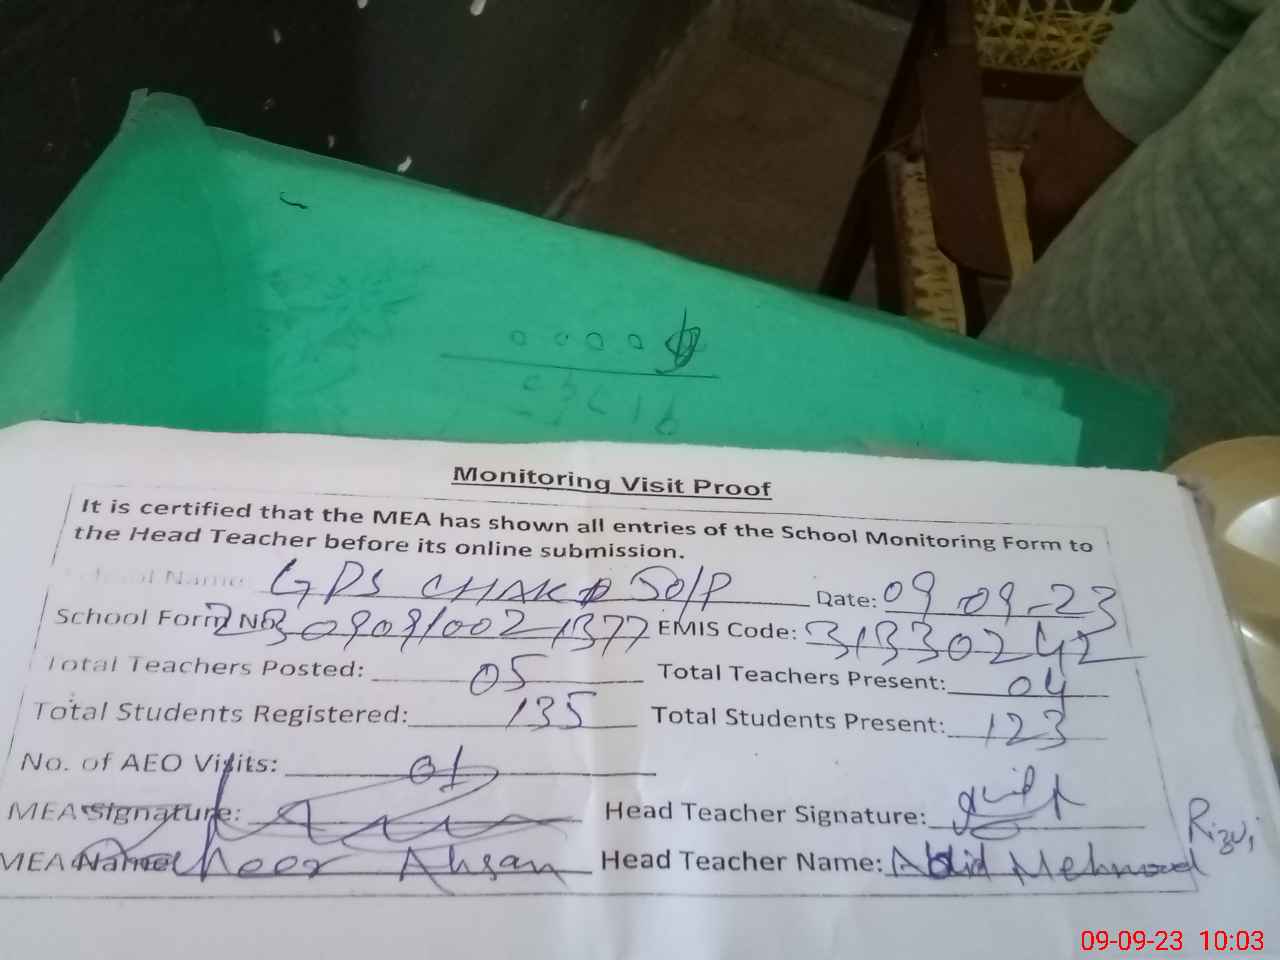 Monitoring Visit Proof
It is certified that the MEA has shown all entries of the School Monitoring Form to
the Head Teacher before its online submission.
School Name: GPS CHAK # 50/P Date: 09-09-23
School Form No. 23090910021377 EMIS Code: 31330242
Total Teachers Posted: 05 Total Teachers Present: 04
Total Students Registered: 135 Total Students Present: 123
No. of AEO Visits: 01
MEA Signature: Head Teacher Signature:
MEA Name: Ahsan Head Teacher Name: Abid Mehmood Rizvi
09-09-23 10:03